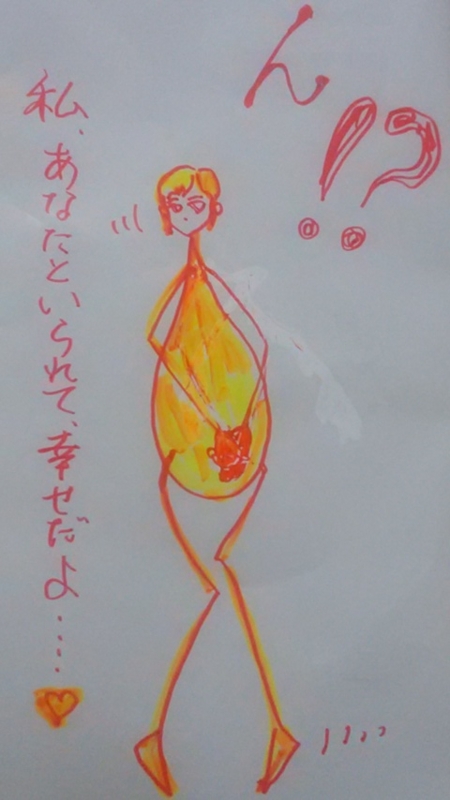 ん!?
私、あなたといられて、幸せだよ‥‥♡